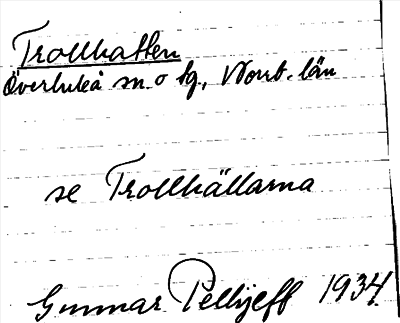 Trollhatten
Överluleå sn. o tg., Norrb. län
se Trollhällarna
Gunnar Pellijeff 1934